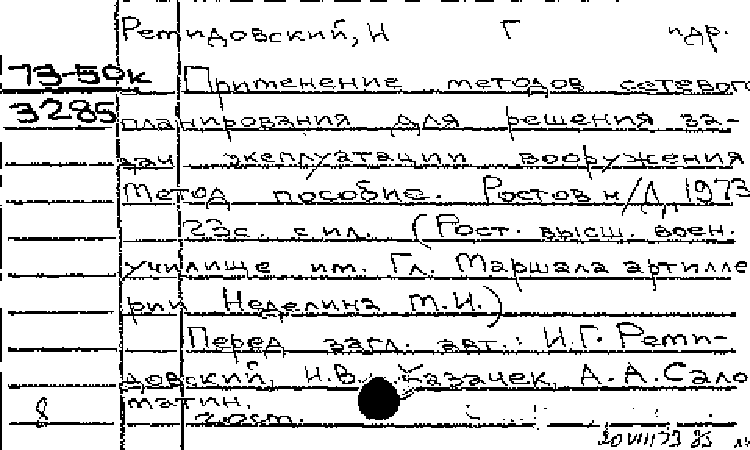 Ремидовский, И Г и др.
73-50к
Применение методов сетевого
3285
планирования для решения за-
дач эксплуатации вооружения
Метод пособие. Ростов н/Д, 1973
23с. с ил. (Рост. высш. воен.
училище им. Гл. Маршала артилле
рии Неделина М.И.)
Перед загл. авт.: И.Г. Реми-
довский, И.В. Казачек, А.А. Сало
матин.
8